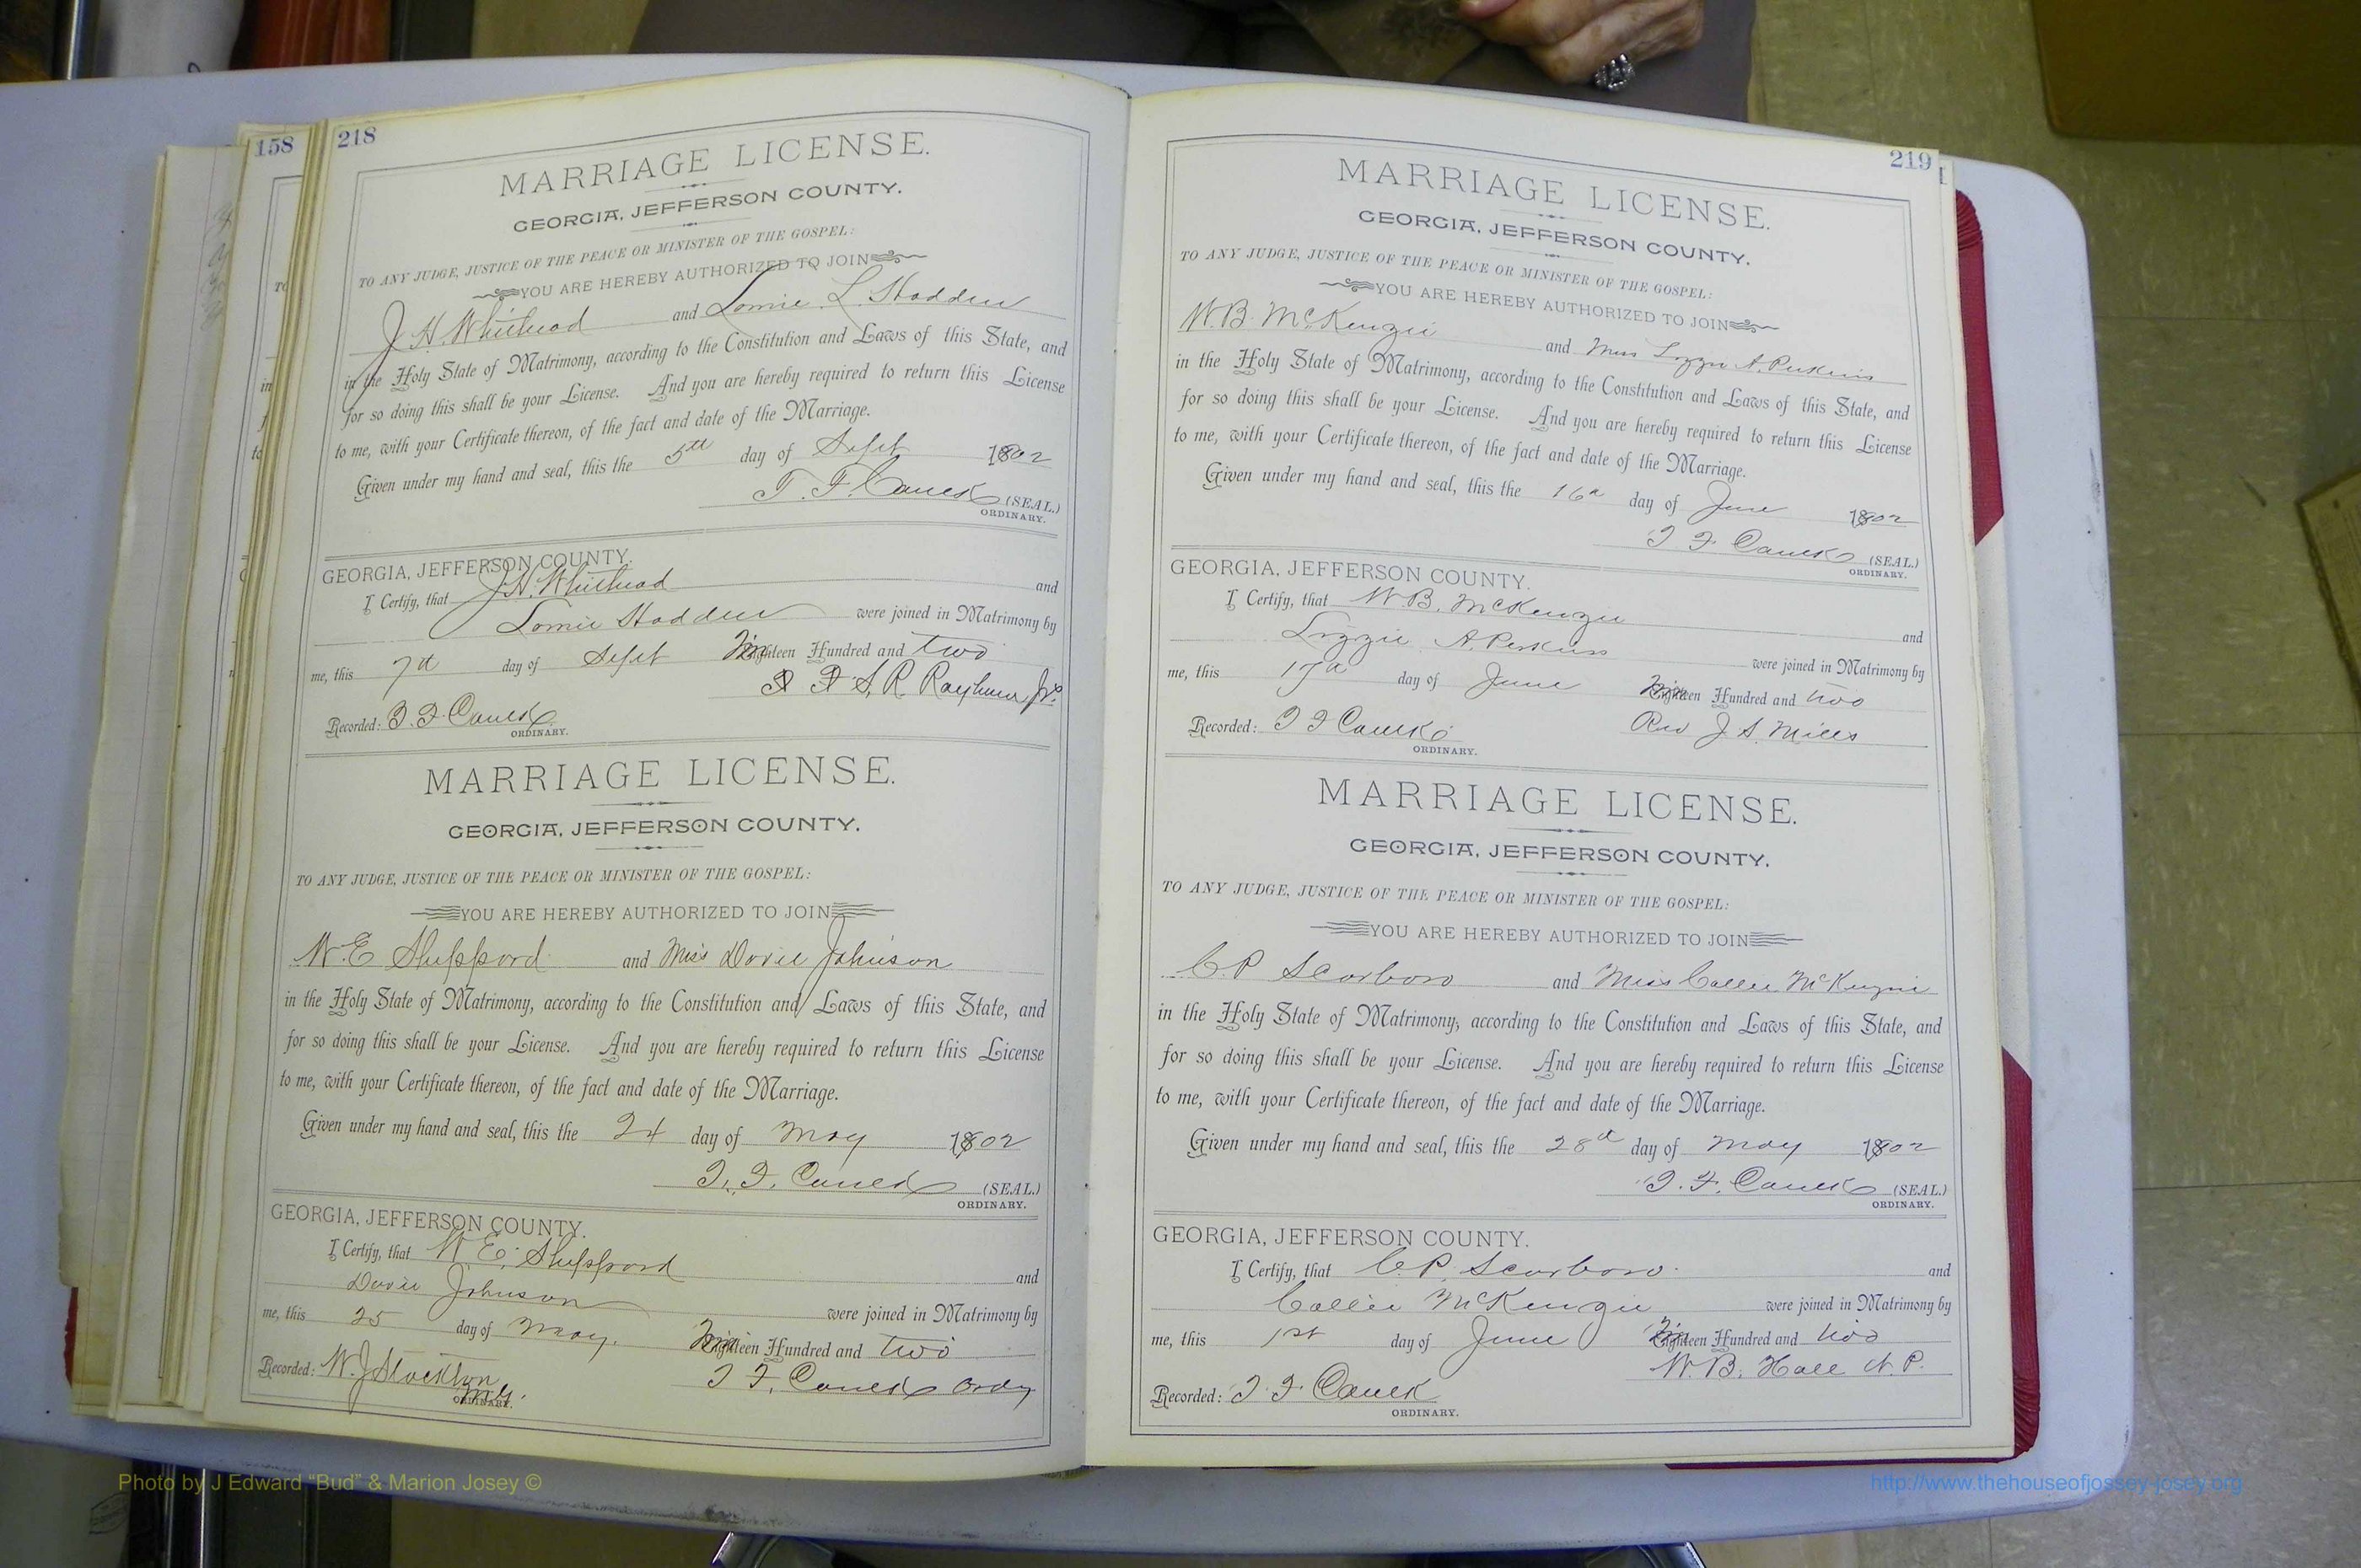 158
218
MARRIAGE LICENSE.
GEORGIA, JEFFERSON COUNTY.
TO ANY JUDGE, JUSTICE OF THE PEACE OR MINISTER OF THE GOSPEL:
YOU ARE HEREBY AUTHORIZED TO JOIN
J. H. Whitehead and Lonnie L. Hadden
in the Holy State of Matrimony, according to the Constitution and Laws of this State, and
for so doing this shall be your License. And you are hereby required to return this License
to me, with your Certificate thereon, of the fact and date of the Marriage.
Given under my hand and seal, this the 5th day of Sept 1902
(SEAL.)
ORDINARY.
GEORGIA, JEFFERSON COUNTY.
I Certify, that J. H. Whitehead and
Lonnie Hadden were joined in Matrimony by
me, this 7th day of Sept Nineteen Hundred and two
S. R.
Recorded:
ORDINARY.
MARRIAGE LICENSE.
GEORGIA, JEFFERSON COUNTY.
TO ANY JUDGE, JUSTICE OF THE PEACE OR MINISTER OF THE GOSPEL:
YOU ARE HEREBY AUTHORIZED TO JOIN
W. E Sheppard and Miss Dovie Johnson
in the Holy State of Matrimony, according to the Constitution and Laws of this State, and
for so doing this shall be your License. And you are hereby required to return this License
to me, with your Certificate thereon, of the fact and date of the Marriage.
Given under my hand and seal, this the 24 day of May 1902
(SEAL.)
ORDINARY.
GEORGIA, JEFFERSON COUNTY.
I Certify, that W. E. Sheppard and
Dovie Johnson were joined in Matrimony by
me, this 25 day of May. Nineteen Hundred and two
Recorded: W. J Stockton M.G. Ordy
ORDINARY.
219
MARRIAGE LICENSE.
GEORGIA, JEFFERSON COUNTY.
TO ANY JUDGE, JUSTICE OF THE PEACE OR MINISTER OF THE GOSPEL:
YOU ARE HEREBY AUTHORIZED TO JOIN
W. B. McKenzie and Miss Lizzie A. Perkins
in the Holy State of Matrimony, according to the Constitution and Laws of this State, and
for so doing this shall be your License. And you are hereby required to return this License
to me, with your Certificate thereon, of the fact and date of the Marriage.
Given under my hand and seal, this the 16th day of June 1902
(SEAL.)
ORDINARY.
GEORGIA, JEFFERSON COUNTY.
I Certify, that W. B. McKenzie and
Lizzie A. Perkins were joined in Matrimony by
me, this 17th day of June Nineteen Hundred and two
Rev J. S. Mills
Recorded:
ORDINARY.
MARRIAGE LICENSE.
GEORGIA, JEFFERSON COUNTY.
TO ANY JUDGE, JUSTICE OF THE PEACE OR MINISTER OF THE GOSPEL:
YOU ARE HEREBY AUTHORIZED TO JOIN
C. P Scarboro and Miss Callie McKenzie
in the Holy State of Matrimony, according to the Constitution and Laws of this State, and
for so doing this shall be your License. And you are hereby required to return this License
to me, with your Certificate thereon, of the fact and date of the Marriage.
Given under my hand and seal, this the 28th day of May 1902
(SEAL.)
ORDINARY.
GEORGIA, JEFFERSON COUNTY.
I Certify, that C. P. Scarboro and
Callie McKenzie were joined in Matrimony by
me, this 1st day of June Nineteen Hundred and two
W. B. Hall N. P.
Recorded:
ORDINARY.
Photo by J Edward “Bud” & Marion Josey ©
http://www.thehouseofjossey-josey.org